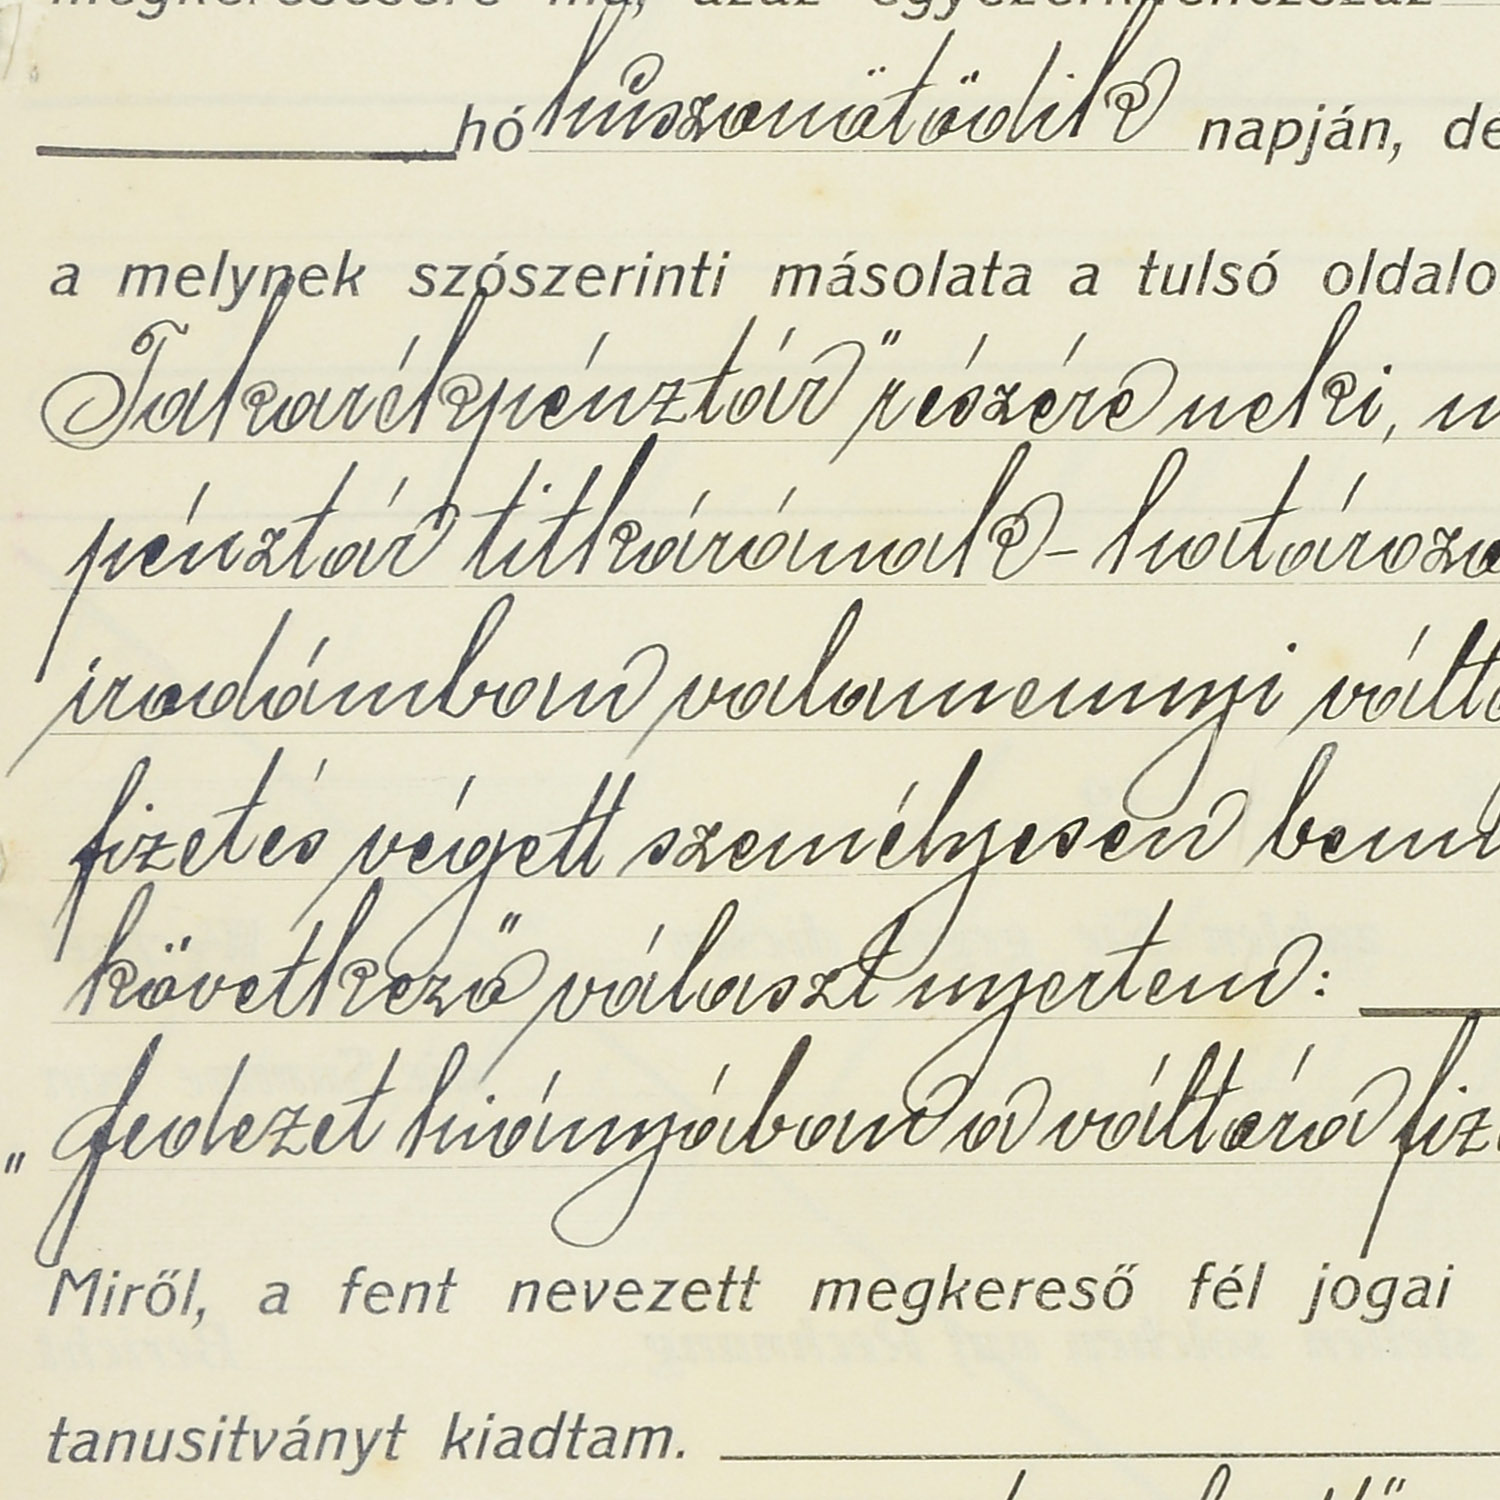 megkeresésére ma, azaz egyezerkilenczszáz
hó huszonötödik napján, de
a melynek szószerinti másolata a tulsó oldalo
Takarékpénztár" részére neki, m
pénztár titkárának - határoza
irodámban valamennyi válto
fizetés végett személyesen bemu
következő választ nyertem:
"fedezet hiányában a váltóra fize
Miről, a fent nevezett megkereső fél jogai
tanusitványt kiadtam.